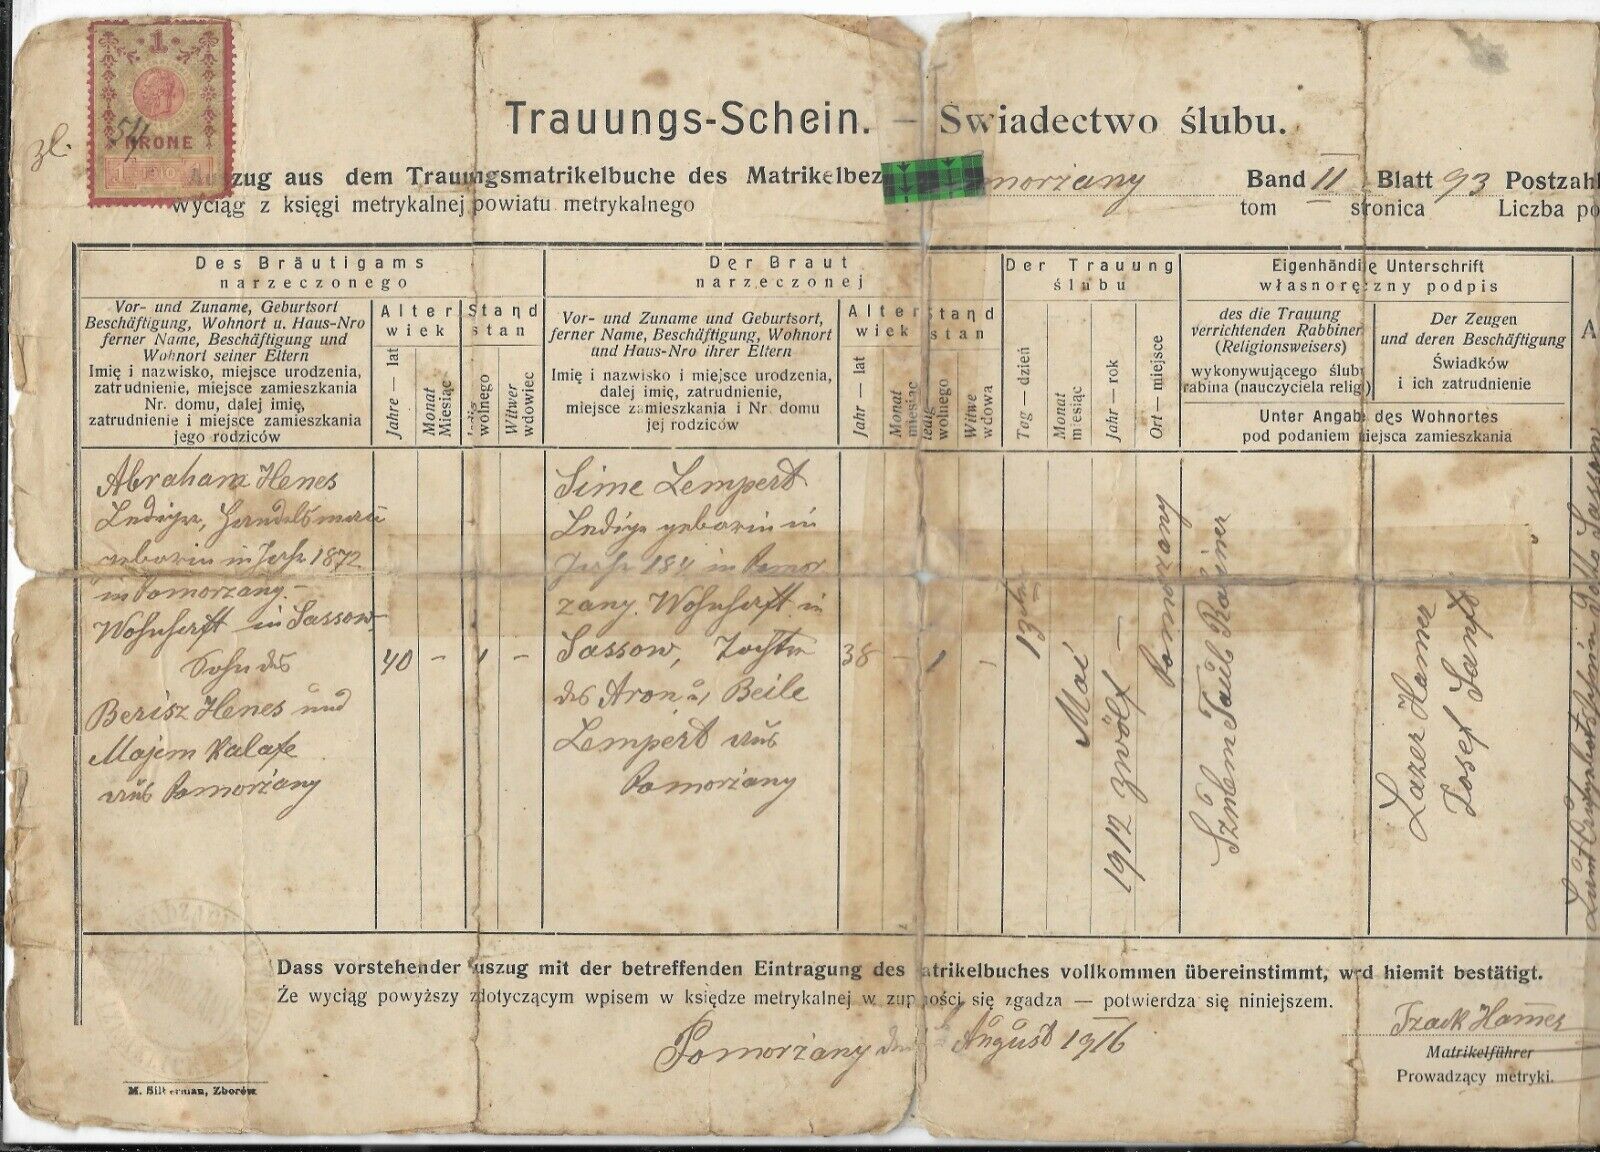 1
KRONE
1910
54
zł.
Trauungs-Schein. — Swiadectwo ślubu.
zug aus dem Trauungsmatrikelbuche des Matrikelbez morzany Band II Blatt 93 Postzahl
wyciąg z księgi metrykalnej powiatu metrykalnego tom stronica Liczba po
Des Bräutigams
narzeczonego
Vor- und Zuname, Geburtsort
Beschäftigung, Wohnort u. Haus-Nro
ferner Name, Beschäftigung und
Wohnort seiner Eltern
Imię i nazwisko, miejsce urodzenia,
zatrudnienie, miejsce zamieszkania
Nr. domu, dalej imię,
zatrudnienie i miejsce zamieszkania
jego rodziców
Alter
wiek
Jahre — lat
Monat
Miesiąc
Stand
stan
ledig
wolnego
Witwer
wdowiec
Der Braut
narzeczonej
Vor- und Zuname und Geburtsort,
ferner Name, Beschäftigung, Wohnort
und Haus-Nro ihrer Eltern
Imię i nazwisko i miejsce urodzenia,
dalej imię, zatrudnienie,
miejsce zamieszkania i Nr. domu
jej rodziców
Alter
wiek
Jahr — lat
Monat
miesiąc
Stand
stan
ledig
wolnego
Witwe
wdowa
Der Trauung
ślubu
Tog — dzień
Monat
miesiąc
Jahr — rok
Ort — miejsce
Eigenhändige Unterschrift
własnoręczny podpis
des die Trauung
verrichtenden Rabbiner
(Religionsweisers)
wykonywującego ślub
rabina (nauczyciela relig)
Der Zeugen
und deren Beschäftigung
Świadków
i ich zatrudnienie
Unter Angabe des Wohnortes
pod podaniem miejsca zamieszkania
A
Abraham Henes
Lediger, Handelsmann
geboren in Jahr 1872
in Pomorzany.
Wohnhaft in Sassow
Sohn des
Berisz Henes und
Majem Kalafe
aus Pomorzany
40 - 1 -
Sime Lempert
Ledige geboren in
Jahr 184 in Pomor
zany. Wohnhaft in
Sassow, Tochter
des Aron u, Beile
Lempert aus
Pomorzany
38 - 1 -
13
Mai
1912 zwölf —
Pomorzany
Rabiner
Lazer Hamer
Josef Sanft
Dass vorstehender uszug mit der betreffenden Eintragung des atrikelbuches vollkommen übereinstimmt, wrd hiemit bestätigt.
Że wyciąg powyższy zdotyczącym wpisem w księdze metrykalnej w zupności się zgadza — potwierdza się niniejszem.
Pomorzany den August 1916
Izack Hamer
Matrikelführer
Prowadzący metryki.
M. Silberman, Zborów